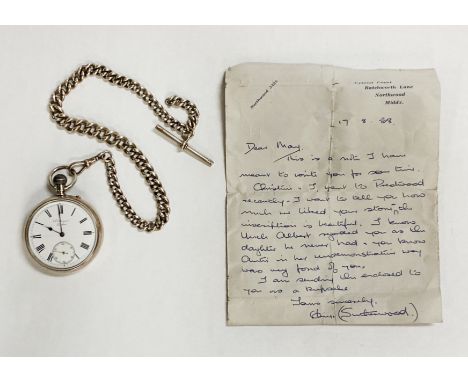 Northwood
Batchworth Lane
Northwood
Middx.
17. 8. 88.
Dear May,
This is a note I have
meant to write you for some time.
Christine & I went to
recently. I want to tell you how
much we liked your stone, the
inscription is beautiful. I know
Uncle Albert regarded you as the
daughter he never had & you know
Auntie in her undemonstrative way
was very fond of you.
I am sending the enclosed to
you as a keepsake
Yours sincerely,